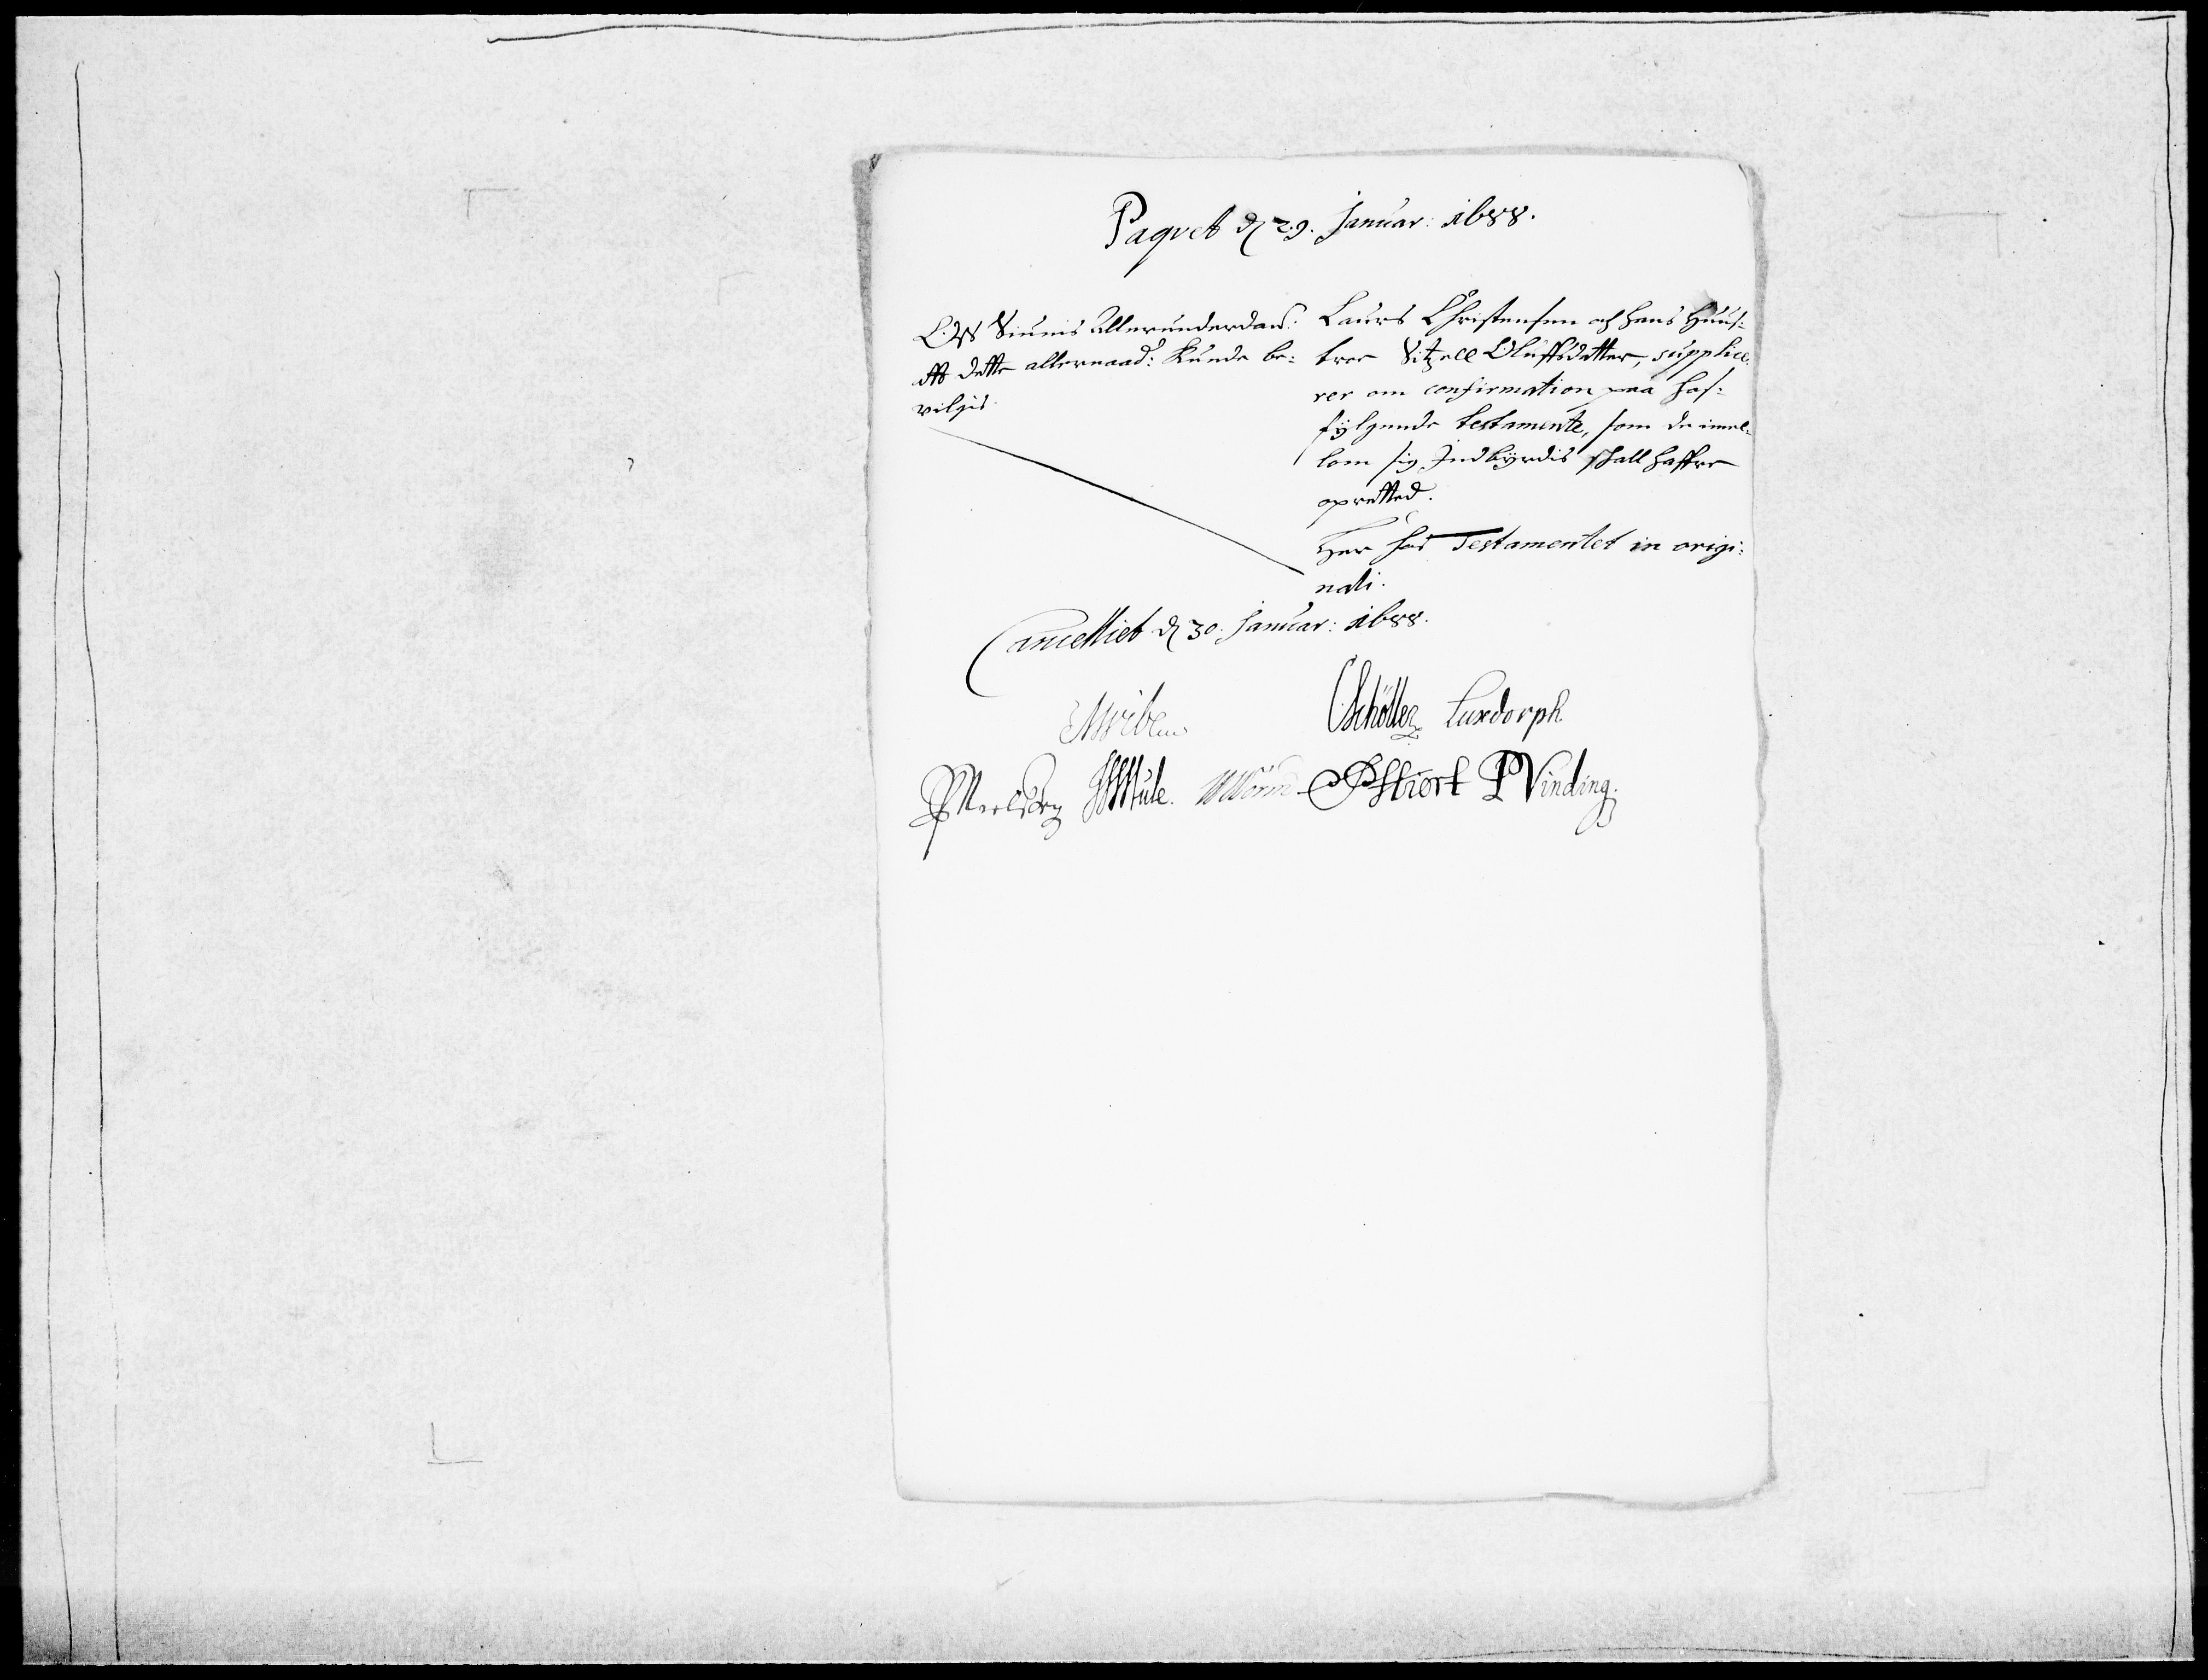 Paqvet d 29. Januar: 1688.
Oss Siunis Allerunderdan:
att dette allernaad: Kunde be-
vilgis.
Laurs Christensen och hans Huus-
troe Sitzell Oluffsdatter, supplice-
rer om confirmation paa hos-
fylgende testamente, som de imel-
lom sig Indbyrdis skall haffve
opretted.
Her hos Testamentet in origi-
nali.
Cancelliet d 30. Januar: 1688.
MWibe
CSchøller Luxdorph
Mule. WWorm PHiort PVinding.